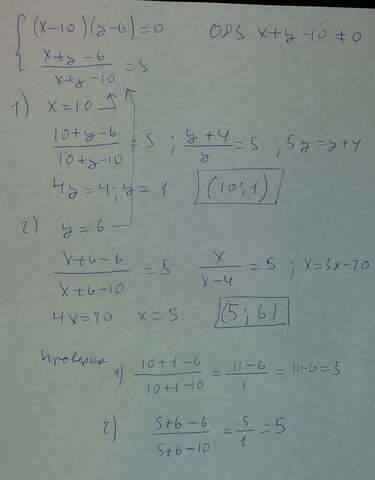 { (x-10)(y-6)=0 ОДЗ x+y-10≠0
(x+y-6)/(x+y-10)=5
1) x=10
(10+y-6)/(10+y-10)=5 ; (y+4)/y=5 ; 5y=y+4
4y=4; y=1 (10;1)
2) y=6
(x+6-6)/(x+6-10)=5 x/(x-4)=5 ; x=5x-20
4x=20 x=5 (5;6)
Проверка 1) (10+1-6)/(10+1-10)=(11-6)/1=11-6=5
2) (5+6-6)/(5+6-10)=5/1=5